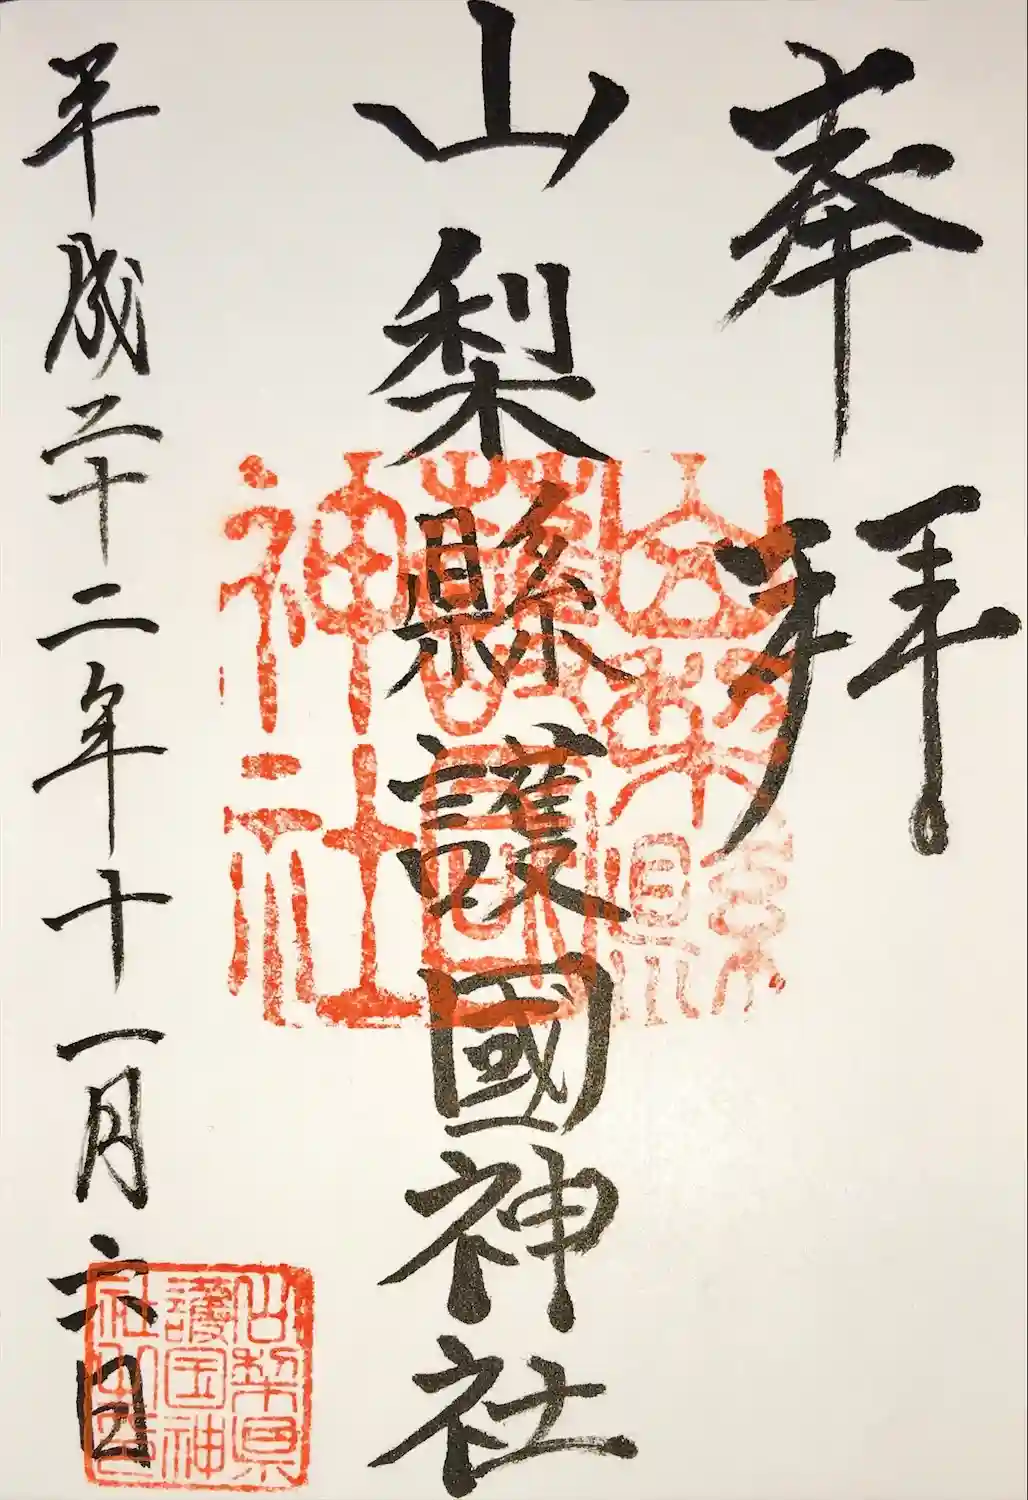 奉拝
山梨縣護國神社
平成二十二年十一月六日
山梨縣
護國
神社
山梨縣
護国神
社